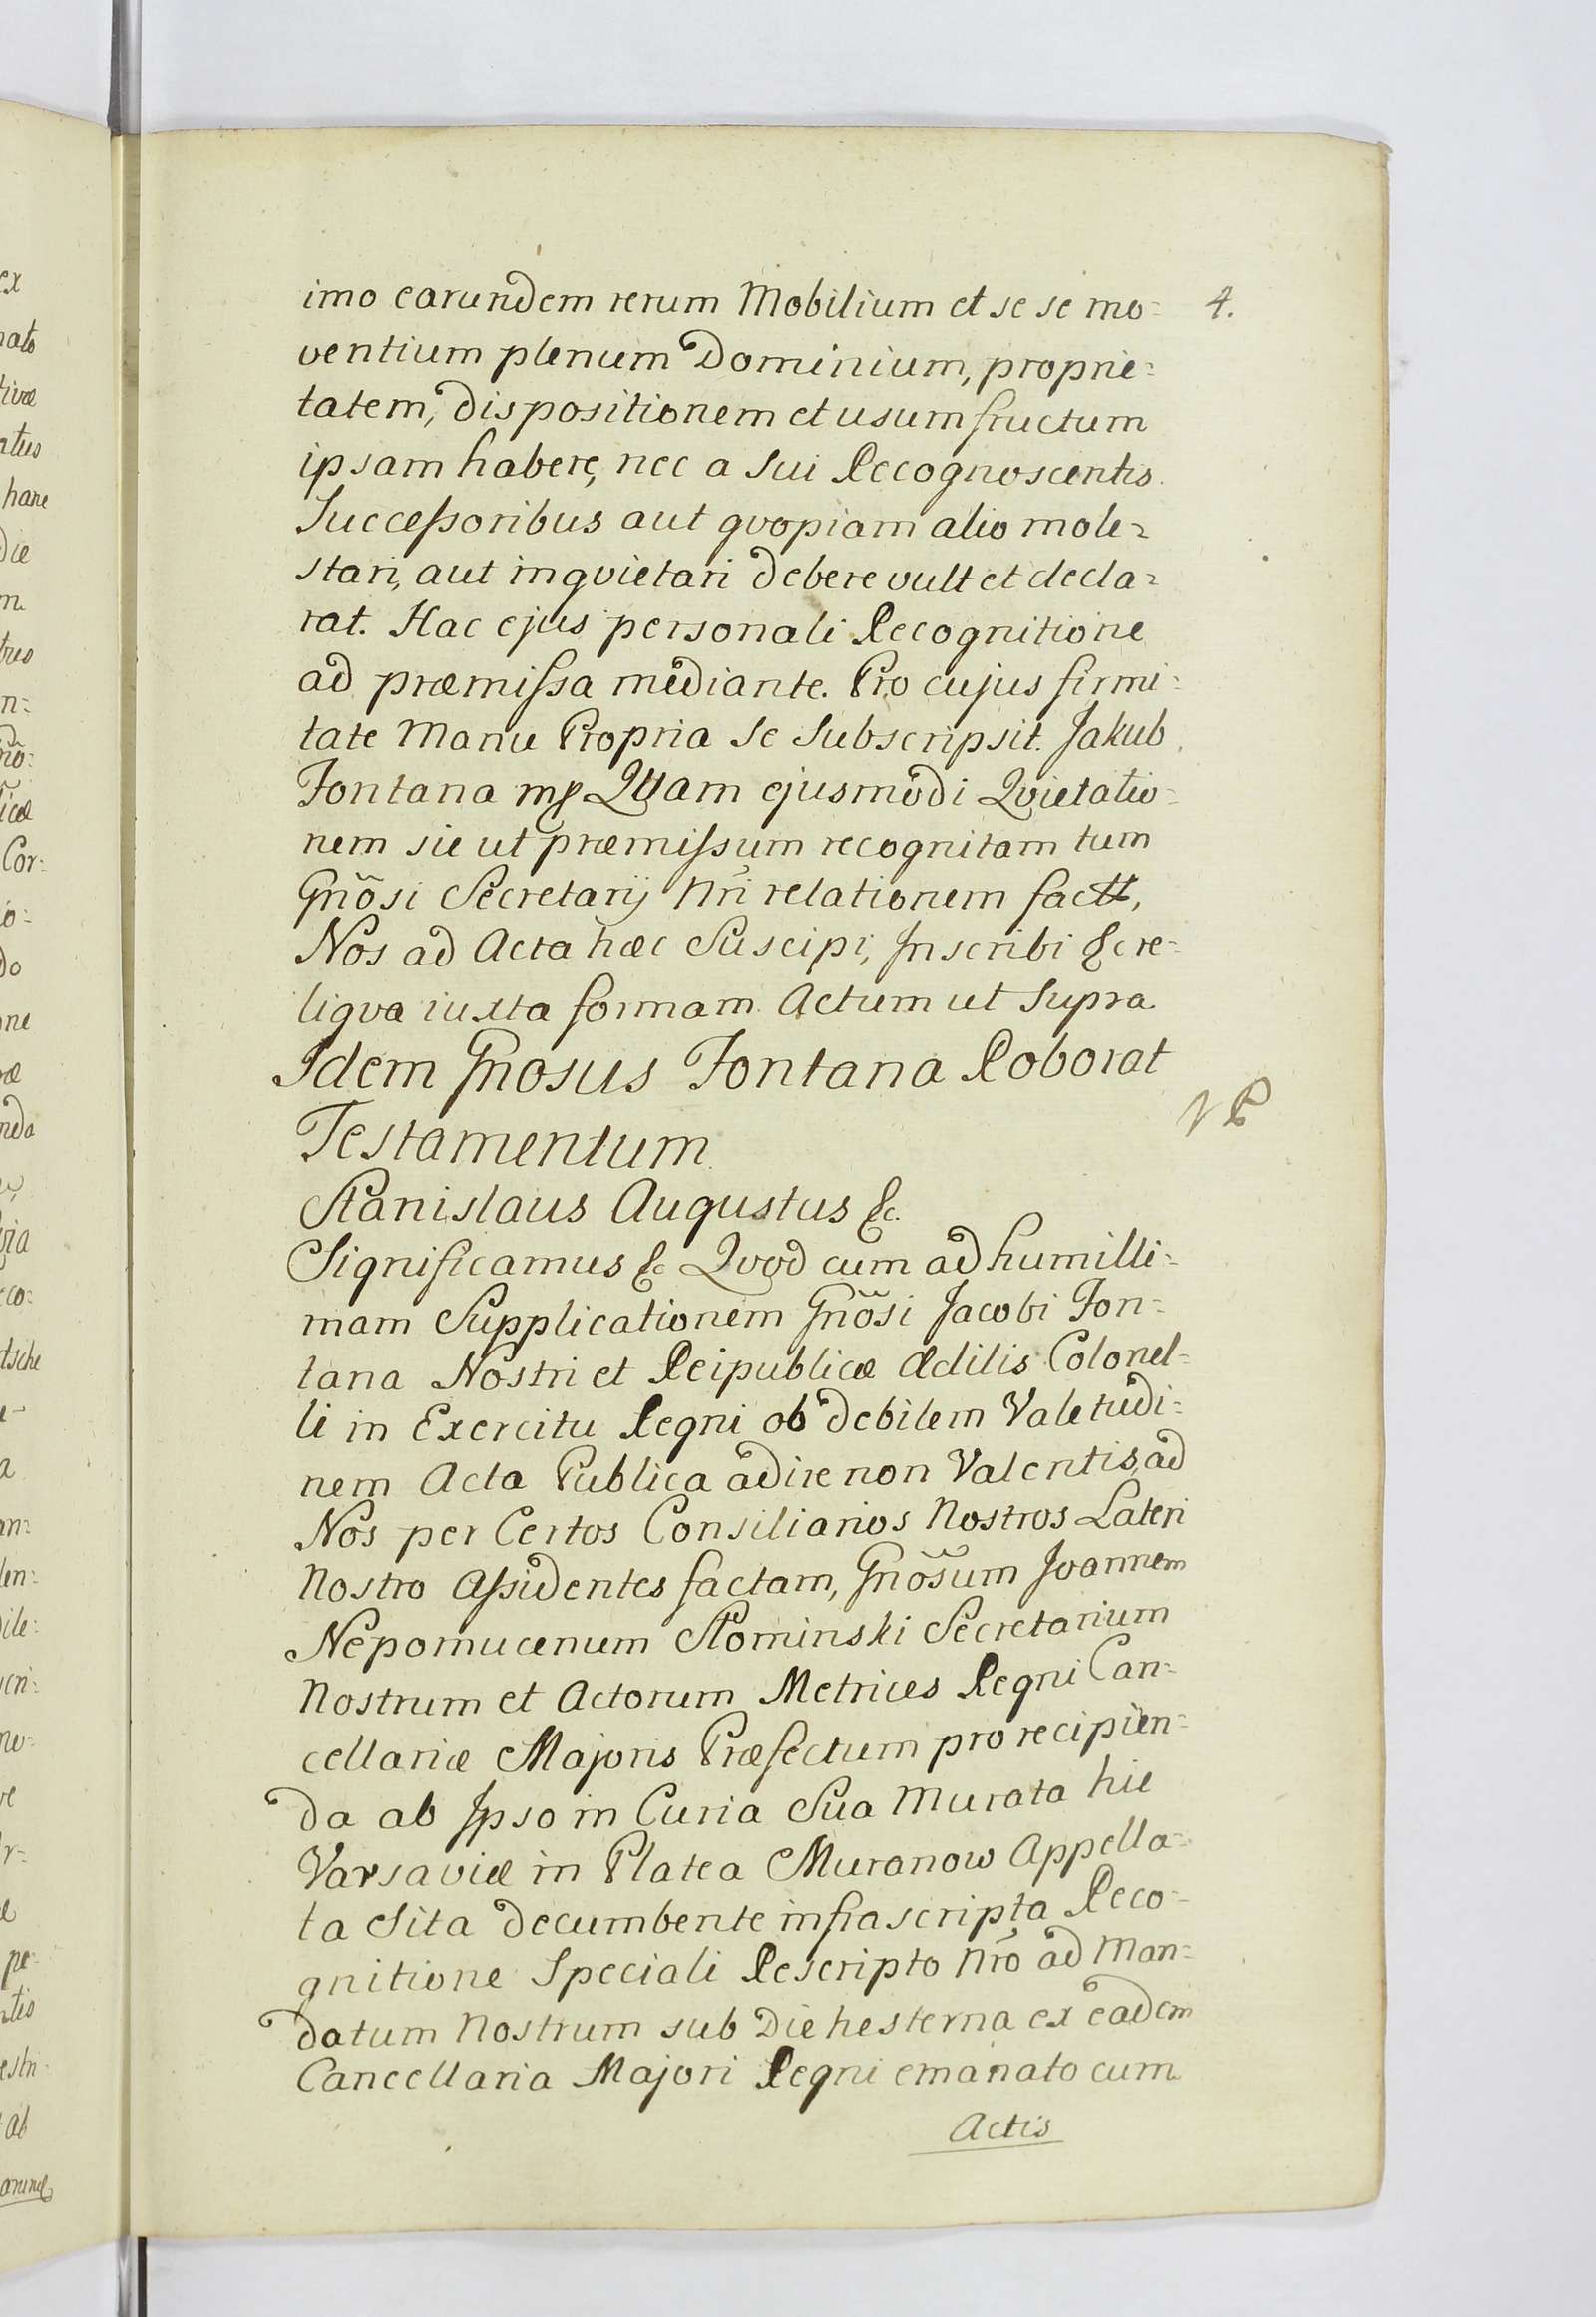 4.
imo earundem rerum Mobilium et se se mo-
ventium plenum Dominium, proprie-
tatem, dispositionem et usumfructum
ipsam habere, nec a Sui Recognoscentis
Successoribus aut qvopiam alio mole-
stari, aut inqvietari debere vult et decla-
rat. Hac ejus personali Recognitione
ad præmissa mediante. Pro cujus firmi-
tate Manu Propria Se Subscripsit. Jakub
Fontana mp Quam ejusmodi Qvietatio-
nem sic ut præmissum recognitam tum
Gnõsi Secretarij Nri relationem factt,
Nos ad Acta hæc Suscipi, Inscribi &c re-
liqva iuxta formam. Actum ut Supra
Idem Gnosus Fontana Roborat
Testamentum
Stanislaus Augustus &c.
Significamus &c Qvod cum ad humilli-
mam Supplicationem Gnõsi Jacobi Fon-
tana Nostri et Reipublicæ Ædilis Colonel-
li in Exercitu Regni ob debilem Valetudi-
nem Acta Publica adire non Valentis, ad
Nos per Certos Consiliarios Nostros Lateri
Nostro Assidentes factam, Gnõsum Joannem
Nepomucenum Słominski Secretarium
Nostrum et Actorum Metrices Regni Can-
cellariæ Majoris Præfectum pro recipien-
da ab Ipso in Curia Sua Murata hic
Varsaviæ in Platea Muranow Appella-
ta Sita decumbente infrascripta Reco-
gnitione Speciali Rescripto Nro ad Man-
datum Nostrum sub Die hesterna ex eadem
Cancellaria Majori Regni emanato cum
Actis